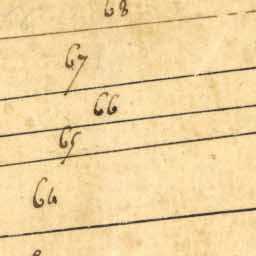 68
67
66
65
64